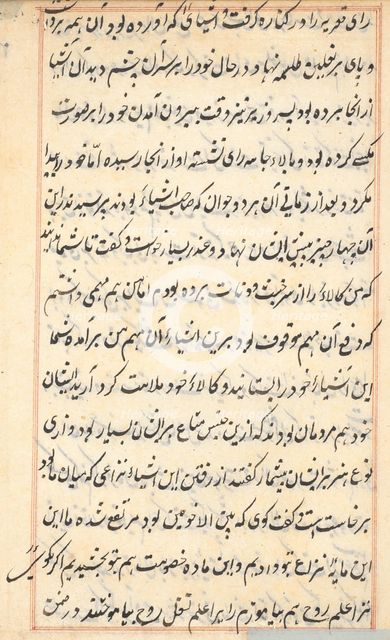 رای تعزیه را در کناره گرفت و اشیای که آورده بود آن همه برداشت
و پای بر نعلین طلسم نهاد و در حال خود را بر سر آن چشمه دید آن اشیا
از آنجا برده بود پسر وزیر نیز وقت بیرون آمدن خود را بر صورت
مگسی کرده بود و بالاء جامه رای نشسته او از آنجا رسیده اما خود را پیدا
نکرد و بعد از زمانی آن هر دو جوان که صاحب اشیاء بودند برسیدند این
آن چهار چیز پیش ایشان نهاد و عذر بسیار خواست و گفت تا شما بدانید
که من کالاء را از سر خیانت برده بودم اما من هم مهمی داشتم
که دفع آن مهم موقوف بود برین اشیاء آن مهم من برآمده شما
این اشیاء خود را بستانید و کالاء خود ملامت کرد آرید ایشان
خود هم مردمان بودند که ازین جنس متاع بر ایشان بسیار بود و ازی
نوع هنر بر ایشان بیشمار گفتند از رفتن این اشیاء نزاعی که میان ما بود
برخاست و گفت گوی که بین الاخوین بود مرتفع شده ما این
این مایه نزاع بتو دادیم و این ماده خصومت هم بتو بخشیدیم اگر گوئی
ترا علم روح هم بیاموزیم رای را علم نقل روح بیاموختند در ضمن